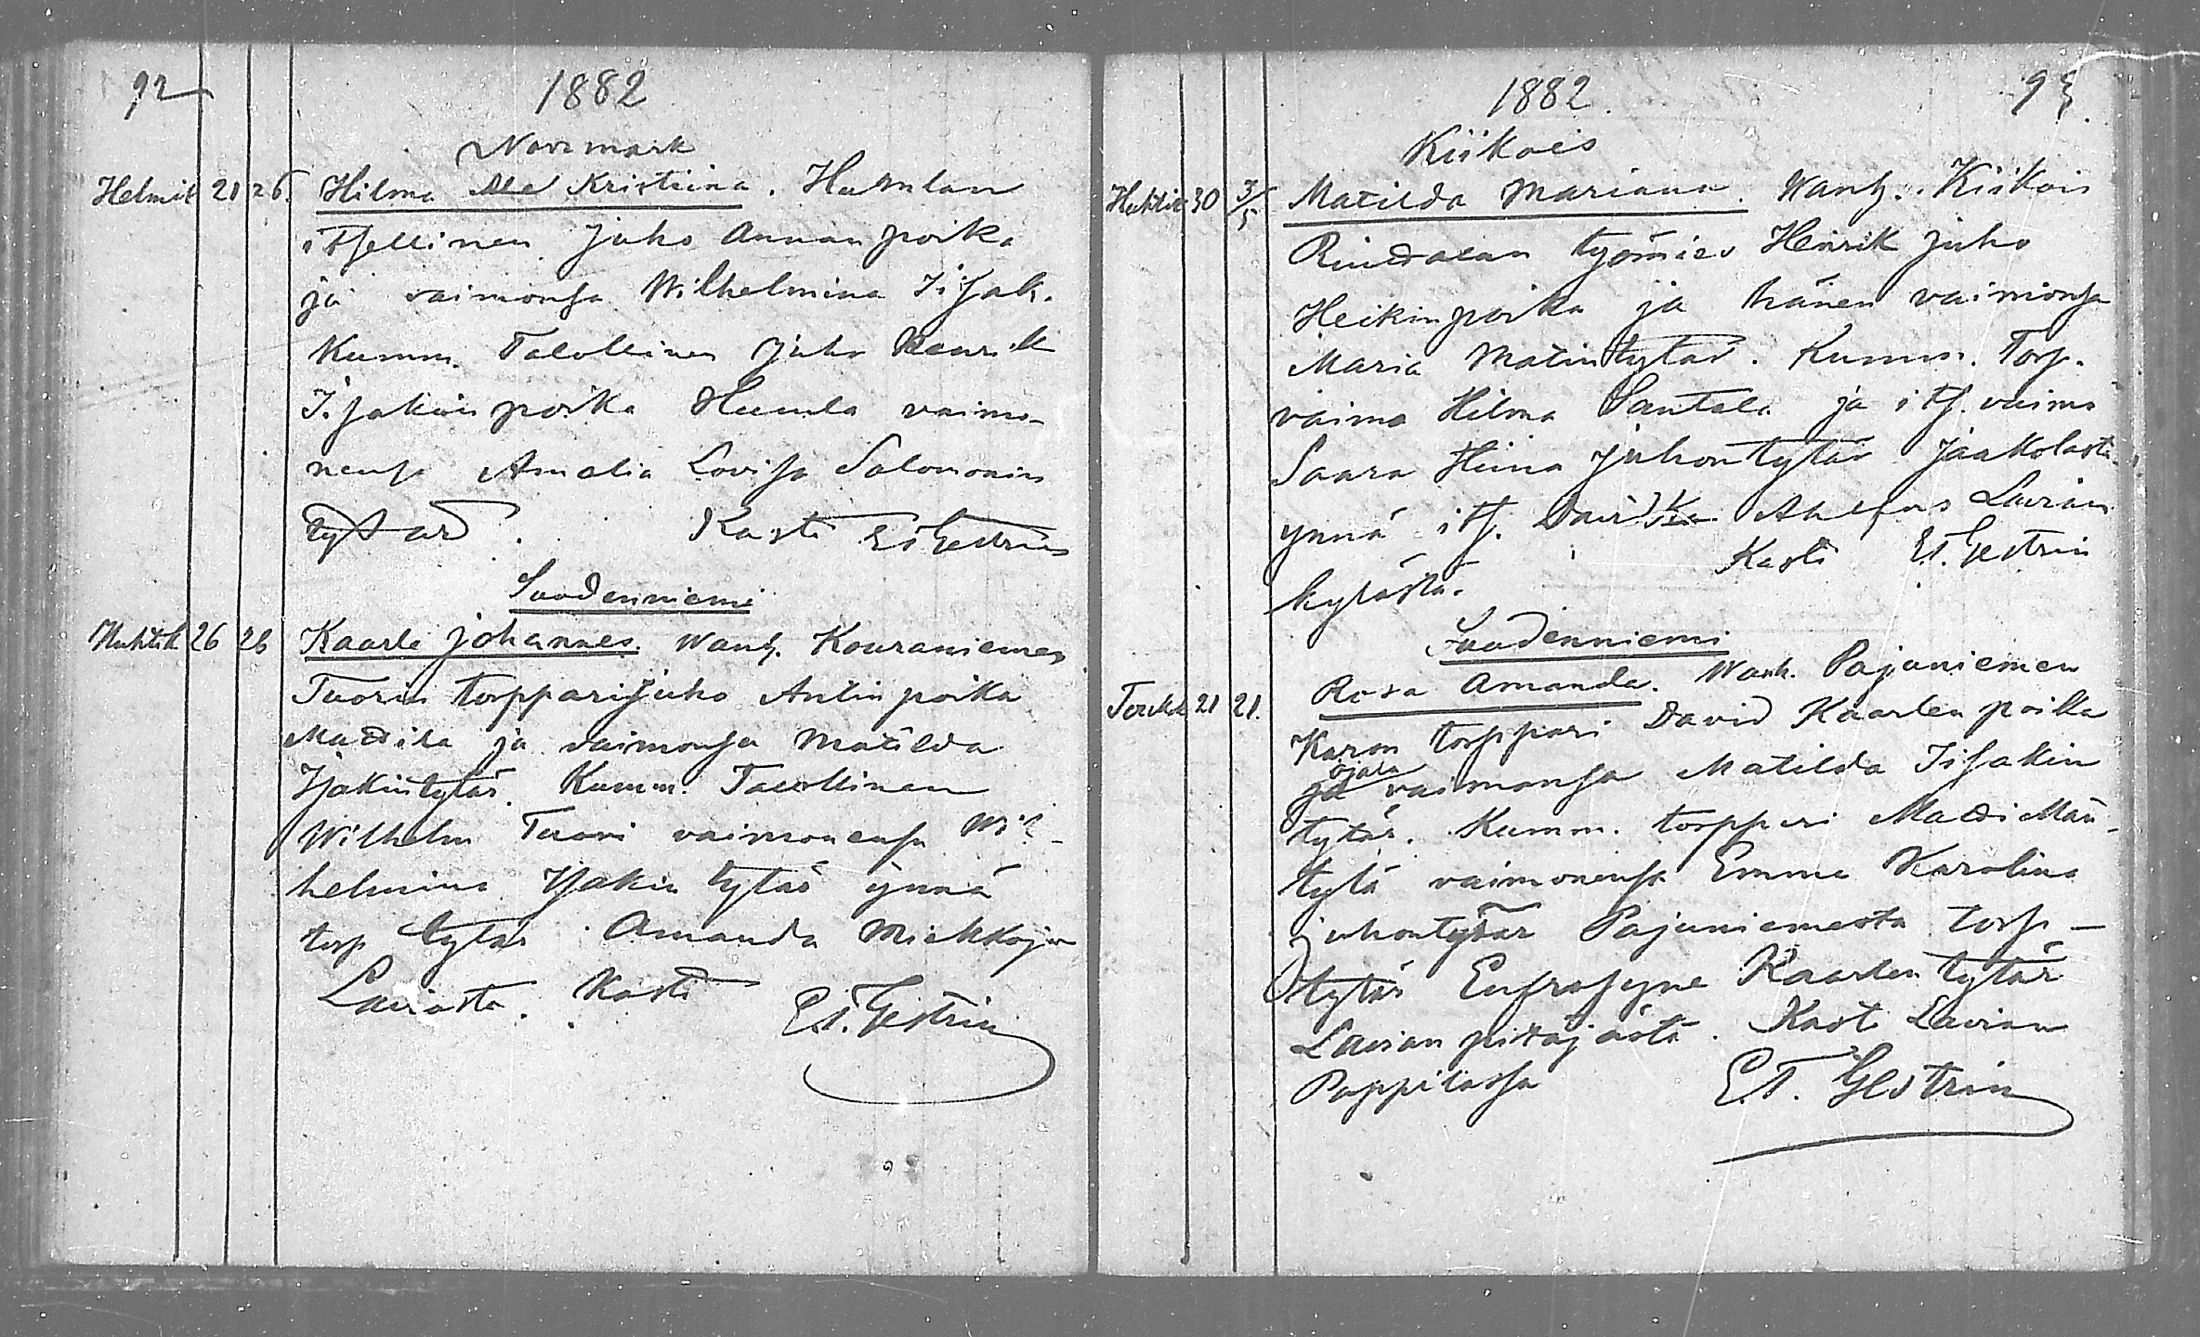 92
1882
Norrmark
Helmik 21 26. Hilma Kristiina. Humlan
itsellinen Juho Annanpoika
ja vaimonsa Wilhelmina Iisak.
Kumm. Talollinen Juho Henrik
Iisakinpoika Humla vaimo-
nensa Amalia Lovisa Salomonin
tytär. Kasti E. T. Gestrin
Suodenniemi
Huhtik 26 26 Kaarle Johannes. Wanh. Kouraniemen
Tuorin torppari Juho Antinpoika
Mattila ja vaimonsa Matilda
Isakintytär. Kumm. Talollinen
Wilhelm Tuori vaimonensa Wil-
helmina Isakin tytär ynnä
torp tytär Amanda
Laviasta. Kasti E. T. Gestrin
1882.
93.
Kiikois
Huhtik 30 3/5 Matilda Mariana. Wanh. Kiikois
työmies Henrik Juho
Heikinpoika ja hänen vaimonsa
Maria Matintytär. Kumm. Torp.
vaimo Hilma Santala ja its. vaimo
Saara Hiina Juhontytär Jaakolasta
ynnä its. David Ahlfors Lavian
kylästä. Kasti E. T. Gestrin
Suodenniemi
Toukk 21 21. Rosa Amanda. Wanh. Pajuniemen
torppari David Kaarlen poika
Ojala
ja vaimonsa Matilda Iisakin
tytär. Kumm. torppari Matti Män-
tylä vaimonensa Emma Karolina
Juhontytär Pajuniemestä torp-
tytär Eufrosyne Kaarlen tytär
Lavian pitäjästä. Kasti Lavian
Pappilassa E. T. Gestrin